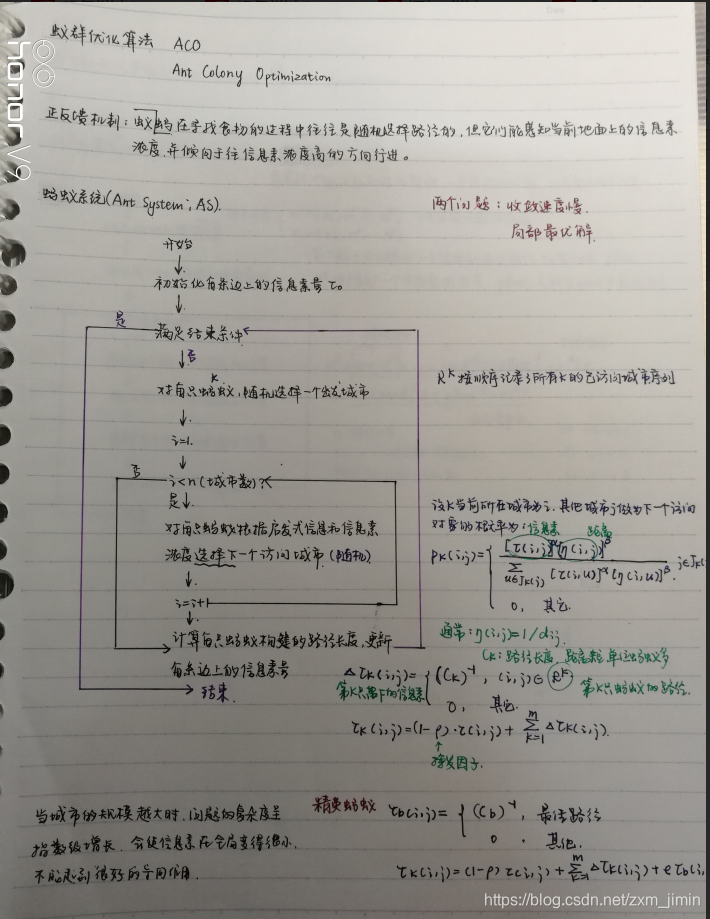 蚁群优化算法 ACO
Ant Colony Optimization
正反馈机制：蚁蚂在寻找食物的过程中往往是随机选择路径的，但它们能感知当前地面上的信息素
浓度，并倾向于往信息素浓度高的方向行进。
蚂蚁系统(Ant System; AS).
两个问题：收敛速度慢.
局部最优解.
开始
初始化每条边上的信息素量 τ₀
是
满足结束条件
否
对每只蚂蚁k，随机选择一个出发城市
i=1.
否
i<n(城市数)?
是
对每只蚂蚁根据启发式信息和信息素
浓度选择下一个访问城市 (随机)
i=i+1
计算每只蚂蚁构建的路径长度，更新
每条边上的信息素量
结束
Rᵏ按顺序记录了所有k的已访问城市序列
设k当前所在城市为i，其他城市j做为下一个访问
对象的概率为: 信息素 距离
Pk(i,j)= { [τ(i,j)]^α[η(i,j)]^β / Σ u∈Jk(i) [τ(i,u)]^α[η(i,u)]^β , j∈Jk(
0, 其它.
通常: η(i,j)=1/dij
Ck: 路径长度
Δτk(i,j)= { (Ck)⁻¹, (i,j)∈Rᵏ
0, 其它.
第k只留下的信息素
第k只蚂蚁的路径.
τk(i,j)=(1-ρ)·τ(i,j)+ Σ k=1 m Δτk(i,j).
挥发因子.
当城市的规模越大时，问题的复杂度呈
指数级增长，会使信息素在全局变得很小，
不能起到很好的导向作用.
精英蚂蚁
τb(i,j)= { (Cb)⁻¹, 最佳路径
0, 其他.
τk(i,j)=(1-ρ)τ(i,j)+ Σ k=1 m Δτk(i,j)+eτb(i,
honor V9
https://blog.csdn.net/zxm_jimin